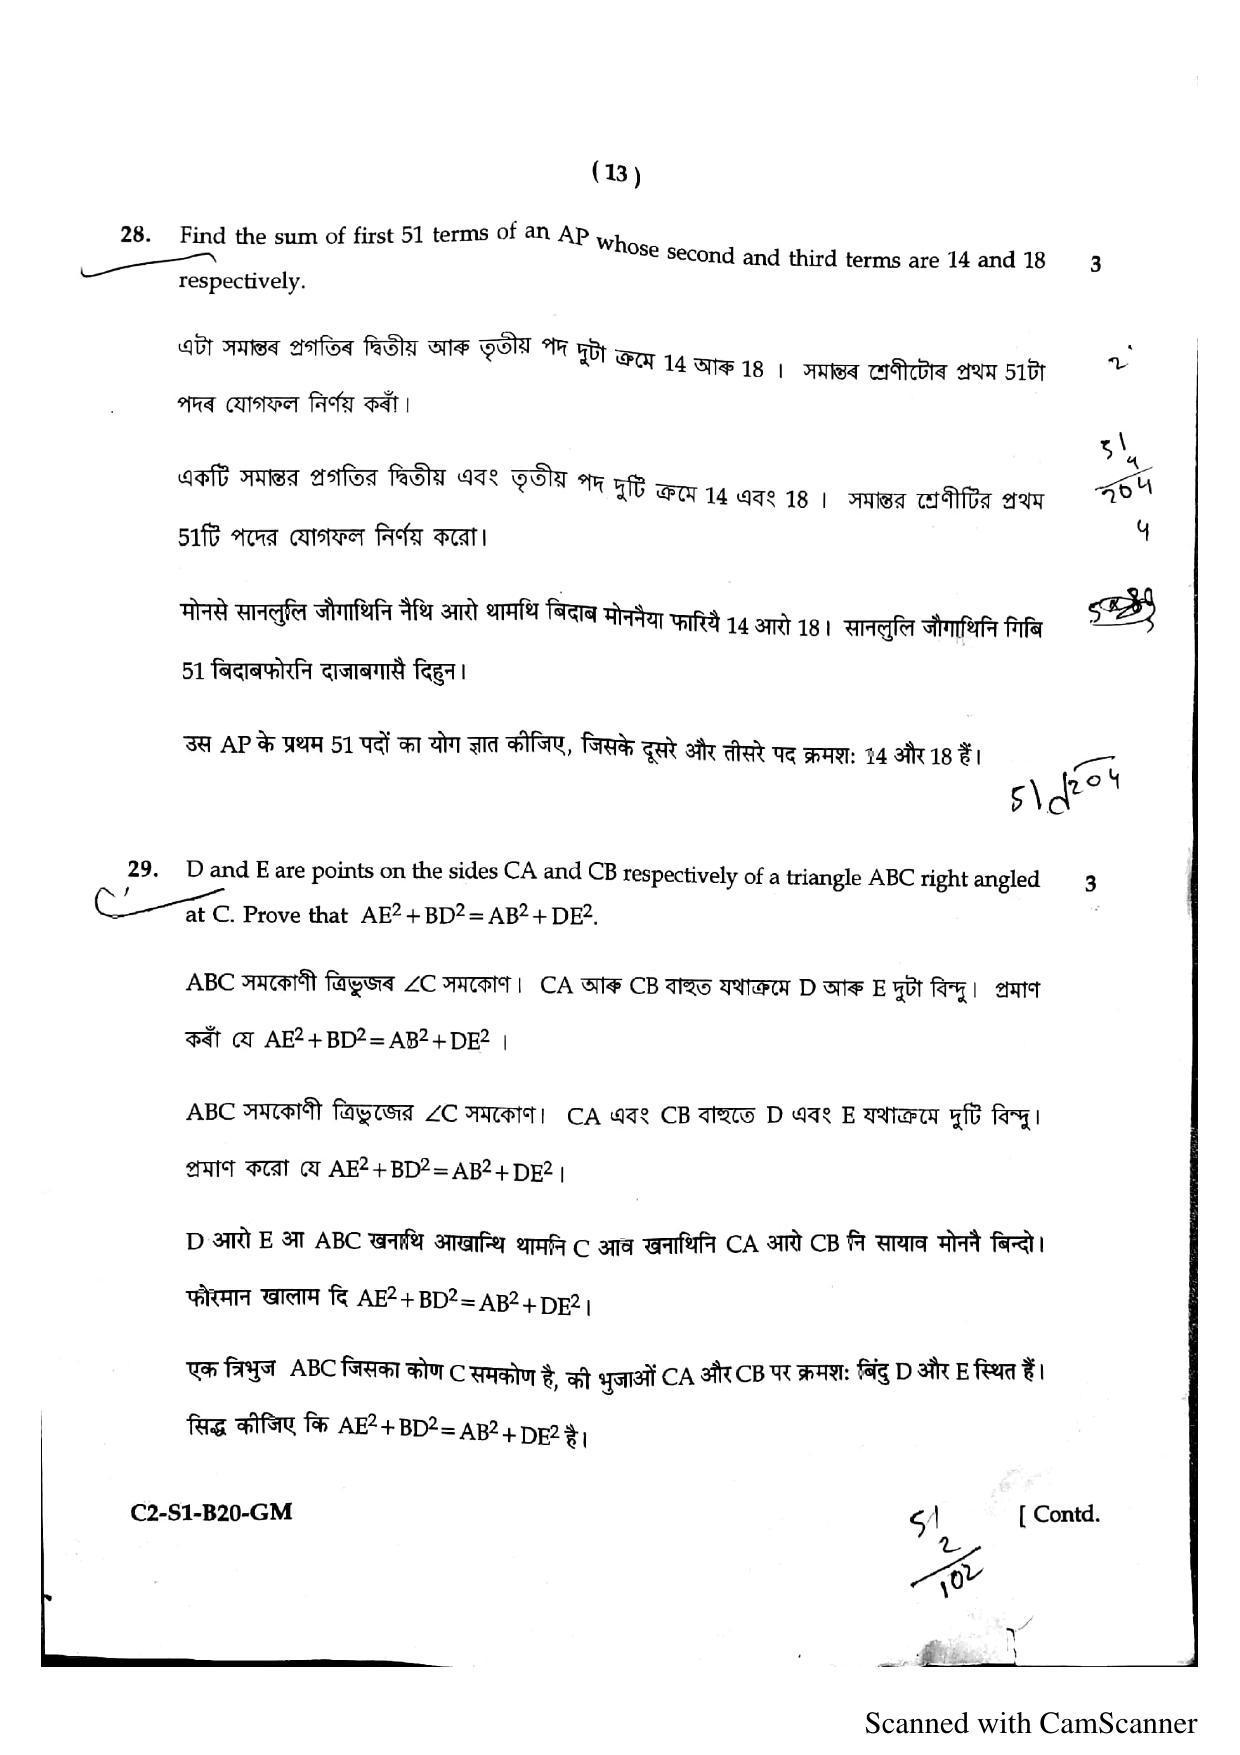 ( 13 )
28. Find the sum of first 51 terms of an AP whose second and third terms are 14 and 18 3
respectively.
এটা সমান্তৰ প্ৰগতিৰ দ্বিতীয় আৰু তৃতীয় পদ দুটা ক্ৰমে 14 আৰু 18 । সমান্তৰ শ্ৰেণীটোৰ প্ৰথম 51টা
2
পদৰ যোগফল নিৰ্ণয় কৰাঁ।
51
4
একটি সমান্তর প্রগতির দ্বিতীয় এবং তৃতীয় পদ দুটি ক্রমে 14 এবং 18 । সমান্তর শ্রেণীটির প্রথম
204
51টি পদের যোগফল নির্ণয় করো।
4
मोनसे सानलुलि जौगाथिनि नैथि आरो थामथि बिदाब मोननैया फारियै 14 आरो 18। सानलुलि जौगाथिनि गिबि
51 बिदाबफोरनि दाजाबगासै दिहुन।
उस AP के प्रथम 51 पदों का योग ज्ञात कीजिए, जिसके दूसरे और तीसरे पद क्रमश: 14 और 18 हैं।
51 204
29. D and E are points on the sides CA and CB respectively of a triangle ABC right angled 3
at C. Prove that AE² + BD² = AB² + DE².
ABC সমকোণী ত্ৰিভূজৰ ∠C সমকোণ। CA আৰু CB বাহুত যথাক্ৰমে D আৰু E দুটা বিন্দু। প্ৰমাণ
কৰাঁ যে AE² + BD² = AB² + DE² ।
ABC সমকোণী ত্রিভূজের ∠C সমকোণ। CA এবং CB বাহুতে D এবং E যথাক্রমে দুটি বিন্দু।
প্রমাণ করো যে AE² + BD² = AB² + DE² ।
D आरो E आ ABC खनाथि आखान्थि थामनि C आव खनाथिनि CA आरो CB नि सायाव मोननै बिन्दो।
फोरमान खालाम दि AE² + BD² = AB² + DE² ।
एक त्रिभुज ABC जिसका कोण C समकोण है, की भुजाओं CA और CB पर क्रमश: बिंदु D और E स्थित हैं।
सिद्ध कीजिए कि AE² + BD² = AB² + DE² है।
C2-S1-B20-GM [ Contd.
51
2
102
Scanned with CamScanner